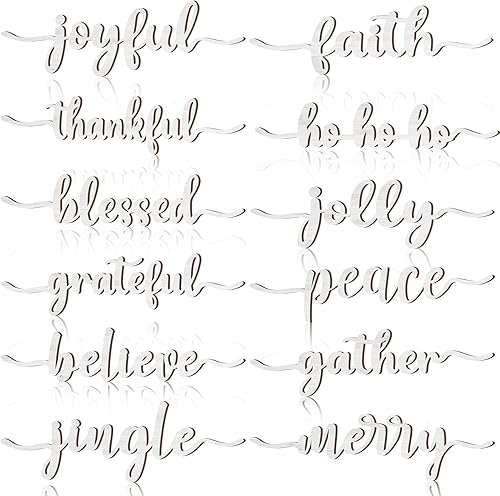 joyful
faith
thankful
ho ho ho
blessed
jolly
grateful
peace
believe
gather
jingle
merry